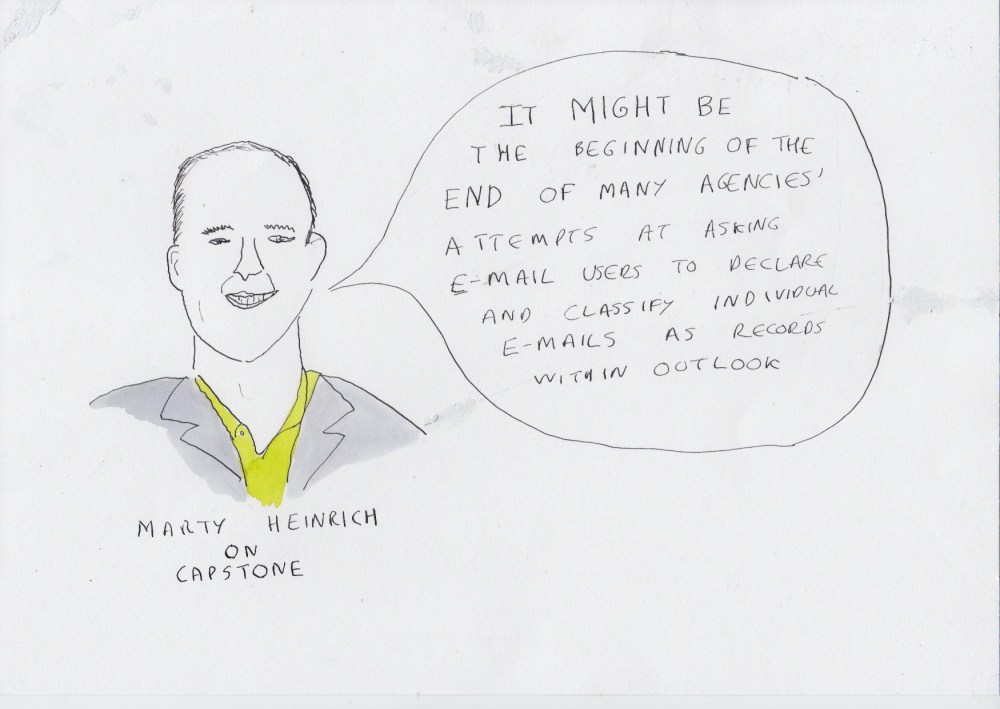 IT MIGHT BE
THE BEGINNING OF THE
END OF MANY AGENCIES'
ATTEMPTS AT ASKING
E-MAIL USERS TO DECLARE
AND CLASSIFY INDIVIDUAL
E-MAILS AS RECORDS
WITHIN OUTLOOK
MARTY HEINRICH
ON
CAPSTONE